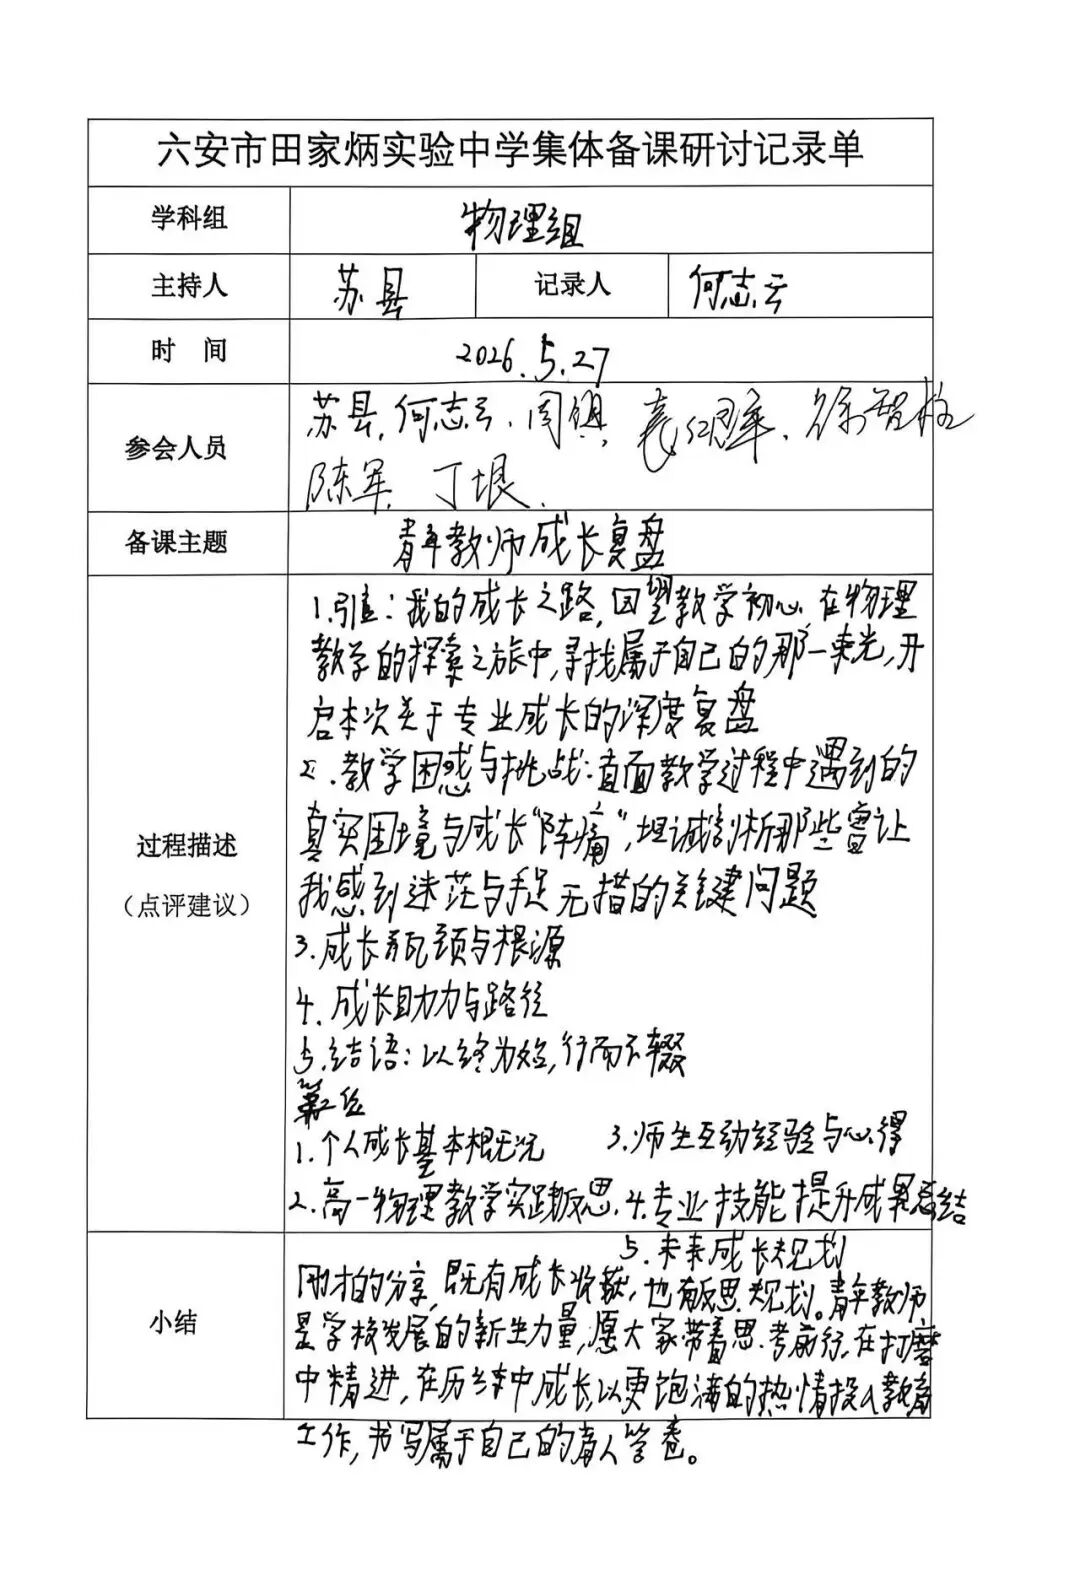 六安市田家炳实验中学集体备课研讨记录单
学科组 物理组
主持人 苏县 记录人 何志云
时 间 2026.5.27
苏县,何志云.周
参会人员
陈军. 丁垠.
备课主题 青年教师成长复盘
1.引言:我的成长之路,回望教学初心,在物理
教学的探索之旅中,寻找属于自己的那一束光,开
启本次关于专业成长的深度复盘
2.教学困惑与挑战:直面教学过程中遇到的
真实困境与成长“阵痛”,坦诚剖析那些曾让
我感到迷茫与手足无措的关键问题
过程描述
(点评建议)
3.成长瓶颈与根源
4.成长助力与路径
5.结语:以终为始,行而不辍
第二位
1.个人成长基本概况 3.师生互动经验与心得
2.高一物理教学实践反思. 4.专业技能提升成果总结
5.未来成长规划
小结
刚才的分享,既有成长收获,也有反思规划。青年教师
是学校发展的新生力量,愿大家带着思考前行,在打磨
中精进,在历练中成长,以更饱满的热情投入教育
工作,书写属于自己的育人答卷。